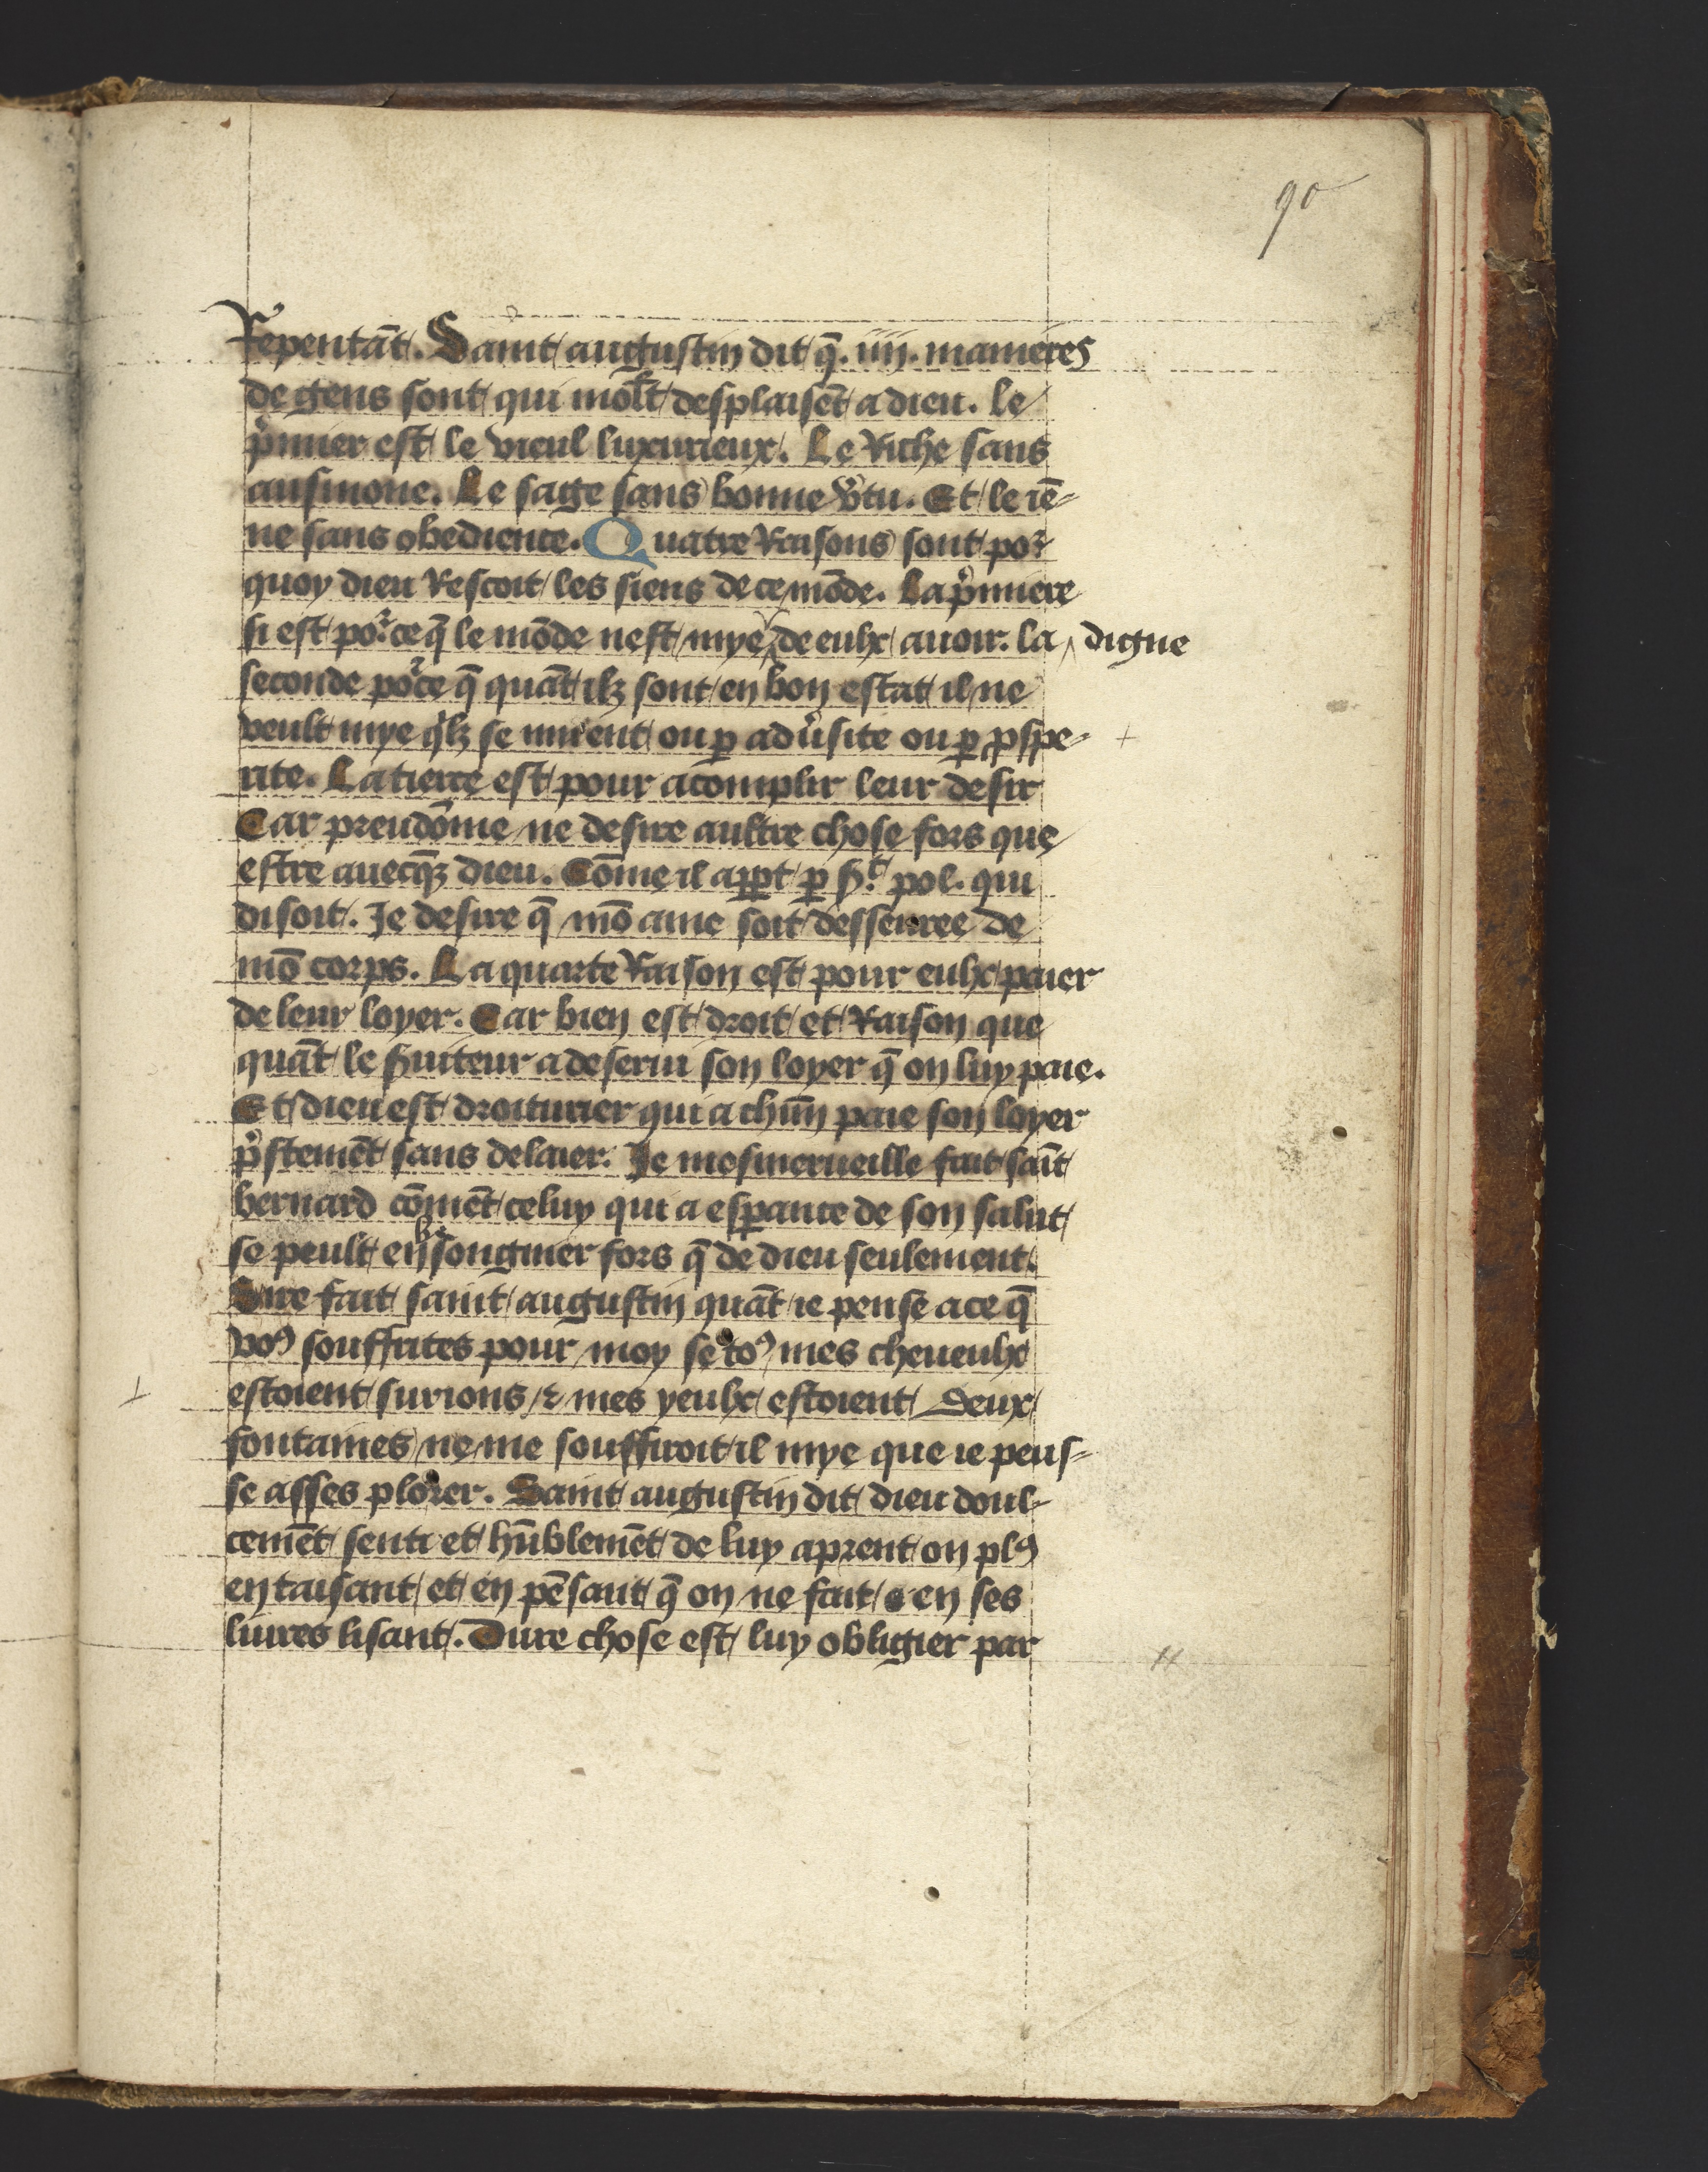 90
Repentāt. Saint augustin dit q̄ .iiii. manieres
de gens sont qui molt desplaisēt a dieu. le
p̄mier est le vieul luxurieux. Le Riche sans
ausmone. Le sage sans bonne v̄tu. Et le iē-
ne sans obedience. Quatre Raisons sont por
quoy dieu Rescoit les siens de ce mōde. La p̄miere
si est por ce q̄ le mōde nest mye ‸ de eulx auoir. la ‸ digne
seconde por ce q̄ quāt ilz sont en bon estat il ne
veult mye qilz se muient ou ꝑ adūsite ou ꝑ ꝓspe-
rite. La tierce est pour acomplir leur desir
Car preudōme ne desire aultre chose fors que
estre auecqꝫ dieu. Cōme il appt ꝑ st pol. qui
disoit. Je desire q̄ mō ame soit desseuree de
mō corps. La quarte Raison est pour eulx paier
de leur loyer. Car bien est droit et Raison que
quāt le s̄uiteur a deserui son loyer q̄ on luy paie.
Et dieu est droiturier qui a chūn paie son loyer
p̄stemēt sans delaier. Je mesmerueille fait saīt
bernard cōmēt celuy qui a esꝑance de son salut
se peult en songnier fors q̄ de dieu seulement.
Sire fait saint augustin quāt ie pense a ce q̄
voꝰ souffrites pour moy se toꝰ mes cheueulx
estoient surions ⁊ mes yeulx estoient deux
fontaines ne me souffiroit il mye que ie peus-
se asses plorer. Saint augustin dit dieu doul-
cemēt senti et hūblemēt de luy aprent on plꝰ
en taisant et en pēsant q̄ on ne fait en ses
liures lisant. Dure chose est luy obligier par